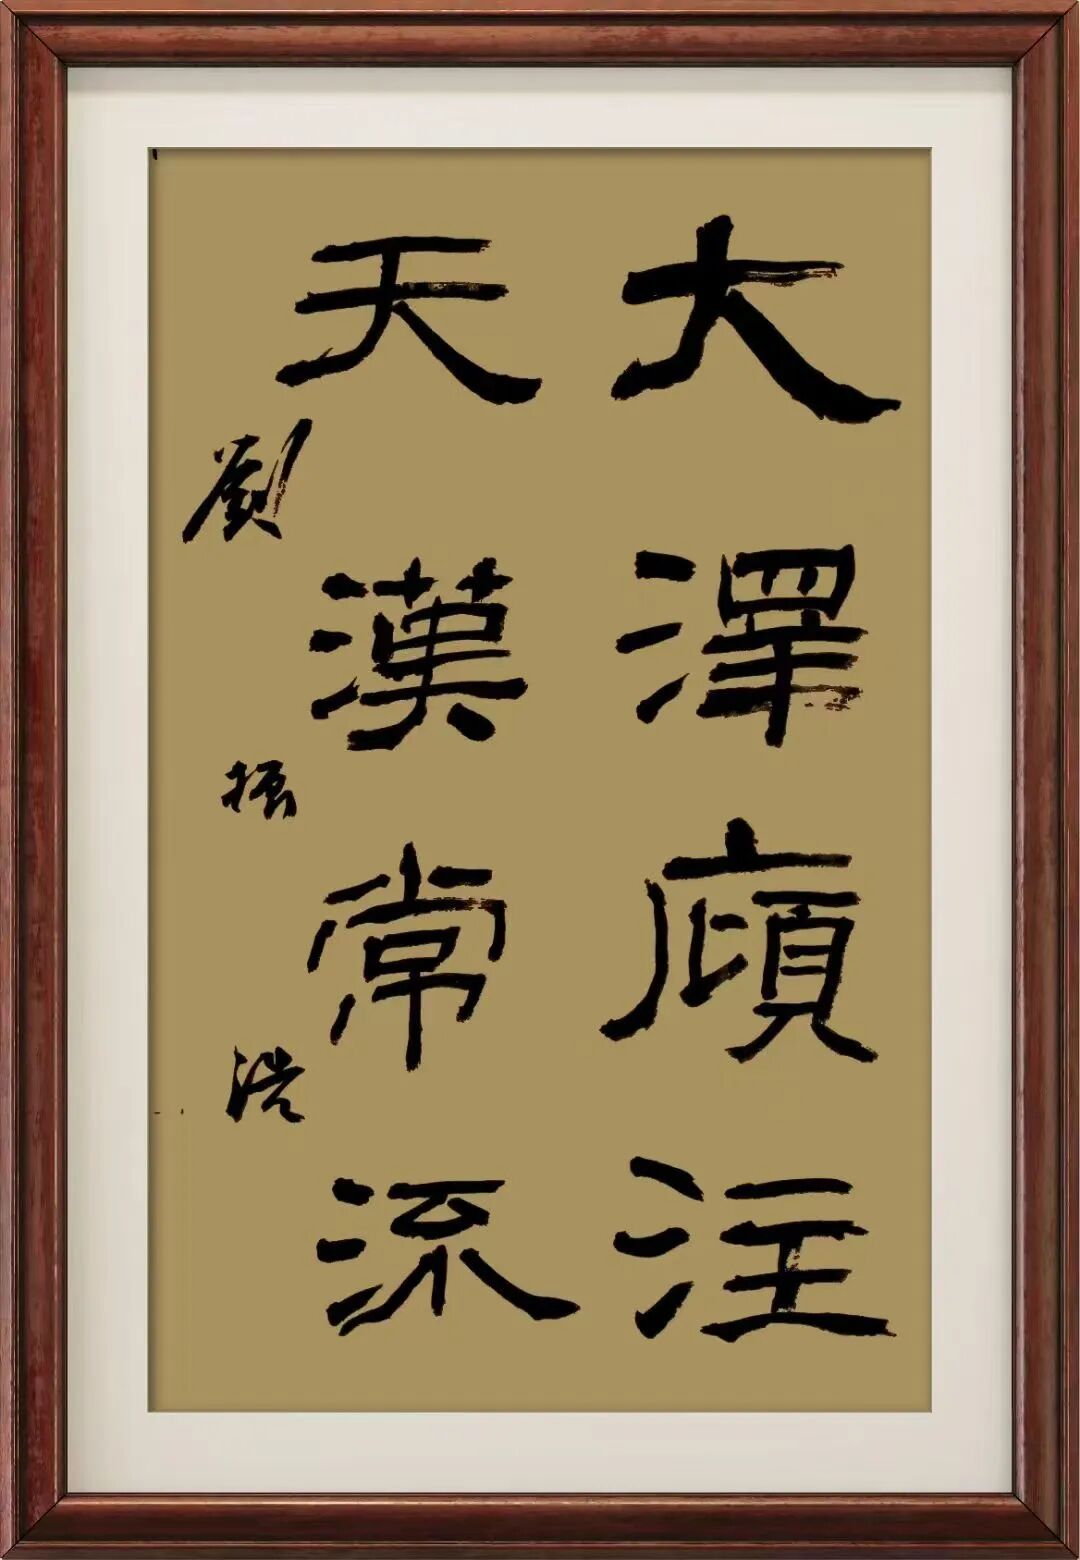 大澤注
天漢常流
劉振浩